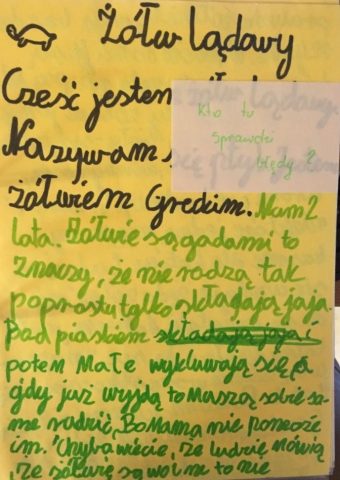 Żółw lądowy
Cześć jestem
Nazywam
żółwiem Greckim. Mam 2
lata. Żółwie są gadami to
znaczy, że nie rodzą tak
poprostu tylko składają jaja.
Pod piaskiem składają jaja i
potem Małe wykluwają się a
gdy już wyjdą to Muszą sobie sa-
me radzić, Bo Mama nie pomoże
im. Chyba wiecie, że ludzie mówią
,że żółwie są wolne to nie
Kto tu
sprawdzi
błędy?